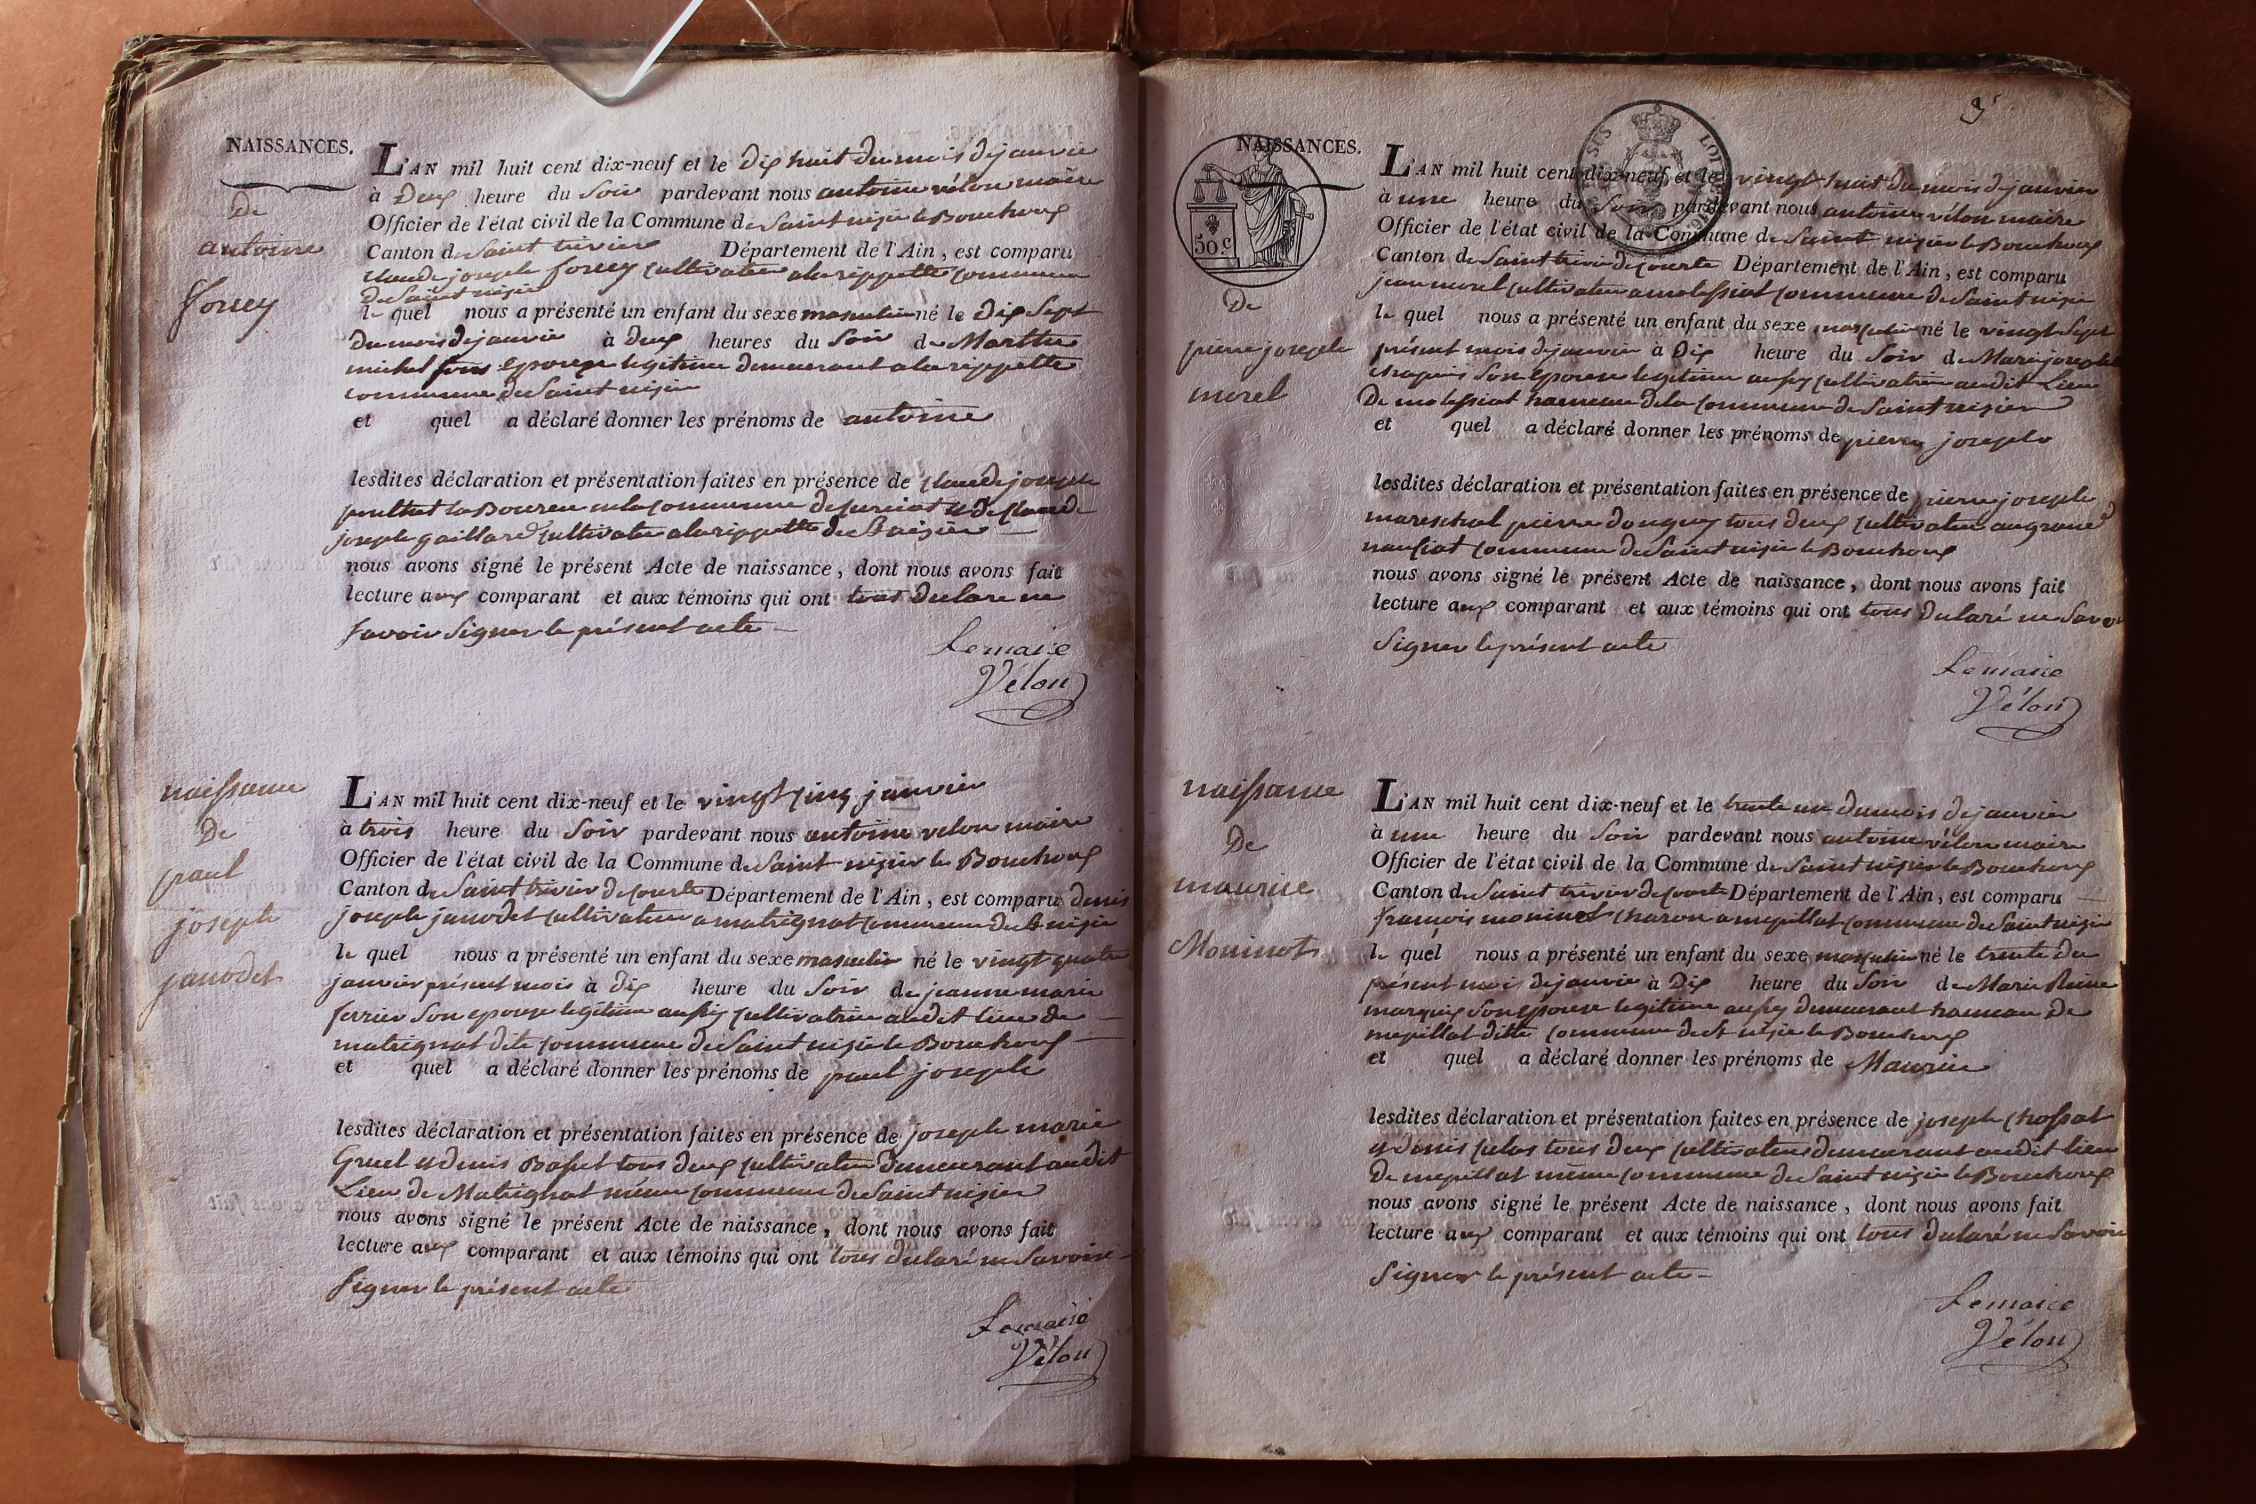 NAISSANCES.
De
antoine
forey
L'AN mil huit cent dix-neuf et le Dix huit du mois de janvier
à Deux heure du Soir pardevant nous antoine vélon maire
Officier de l'état civil de la Commune de Saint nizier le Bouchoux
Canton de Saint trivier Département de l'Ain, est comparu
claude joseph forey cultivateur a la rippette commune
De Saint nizier
le quel nous a présenté un enfant du sexe masculin né le Dix Sept
du mois de janvier à deux heures du Soir de Marthe
michel son epouse legitime demeurant a la rippette
commune de Saint nizier
et quel a déclaré donner les prénoms de antoine
lesdites déclaration et présentation faites en présence de claude joseph
de la commune de et de claude
joseph gaillard cultivateur a la rippette de St nizier
nous avons signé le présent Acte de naissance, dont nous avons fait
lecture aux comparant et aux témoins qui ont tous declaré ne
savoir signer le présent acte
Lemaire
Vélon
naissance
De
paul
joseph
janodet
L'AN mil huit cent dix-neuf et le vingt cinq janvier
à trois heure du Soir pardevant nous antoine velon maire
Officier de l'état civil de la Commune de Saint nizier le Bouchoux
Canton de Saint trivier de courte Département de l'Ain, est comparu denis
joseph janodet cultivateur a matrignat commune de St nizier
le quel nous a présenté un enfant du sexe masculin né le vingt quatre
janvier présent mois à dix heure du Soir de jeanne marie
ferrier son epouse legitime aussy cultivatrice audit lieu de
matrignat dite commune de Saint nizier le Bouchoux
et quel a déclaré donner les prénoms de paul joseph
lesdites déclaration et présentation faites en présence de joseph marie
Gruel et denis Basset tous deux cultivateur demeurant audit
Lieu de Matrignat même commune de Saint nizier
nous avons signé le présent Acte de naissance, dont nous avons fait
lecture aux comparant et aux témoins qui ont tous declaré ne Savoir
signer le présent acte
Lemaire
Vélon
3
NAISSANCES.
50 c
De
pierre joseph
morel
L'AN mil huit cent dix-neuf et le vingt huit du mois de janvier
à une heure du Soir pardevant nous antoine vélon maire
Officier de l'état civil de la Commune de Saint nizier le Bouchoux
Canton de Saint trivier de courte Département de l'Ain, est comparu
jean morel cultivateur a molessiat commune de Saint nizier
le quel nous a présenté un enfant du sexe masculin né le vingt Sept
présent mois de janvier à Dix heure du Soir de Marie joseph
son epouse legitime aussy cultivatrice audit Lieu
De molessiat hameau de la commune de Saint nizier
et quel a déclaré donner les prénoms de pierre joseph
lesdites déclaration et présentation faites en présence de pierre joseph
mareschal pierre donguy tous deux cultivateur au grand
nansiat commune de Saint nizier le Bouchoux
nous avons signé le présent Acte de naissance, dont nous avons fait
lecture aux comparant et aux témoins qui ont tous declaré ne Savoir
Signer le présent acte
Lemaire
Vélon
naissance
De
maurice
Moninot
L'AN mil huit cent dix-neuf et le trente un du mois de janvier
à une heure du Soir pardevant nous antoine vélon maire
Officier de l'état civil de la Commune de Saint nizier le Bouchoux
Canton de Saint trivier de courte Département de l'Ain, est comparu
françois moninot charon a mepillat commune de Saint nizier
le quel nous a présenté un enfant du sexe masculin né le trente du
présent mois de janvier à Dix heure du Soir de Marie Reine
marquis son epouse legitime aussy demeurant hameau De
mepillat ditte commune de St nizier le Bouchoux
et quel a déclaré donner les prénoms de Maurice
lesdites déclaration et présentation faites en présence de joseph chossat
et denis tous deux cultivateurs demeurant audit lieu
De mepillat même commune de Saint nizier le Bouchoux
nous avons signé le présent Acte de naissance, dont nous avons fait
lecture aux comparant et aux témoins qui ont tous declaré ne Savoir
Signer le présent acte
Lemaire
Vélon